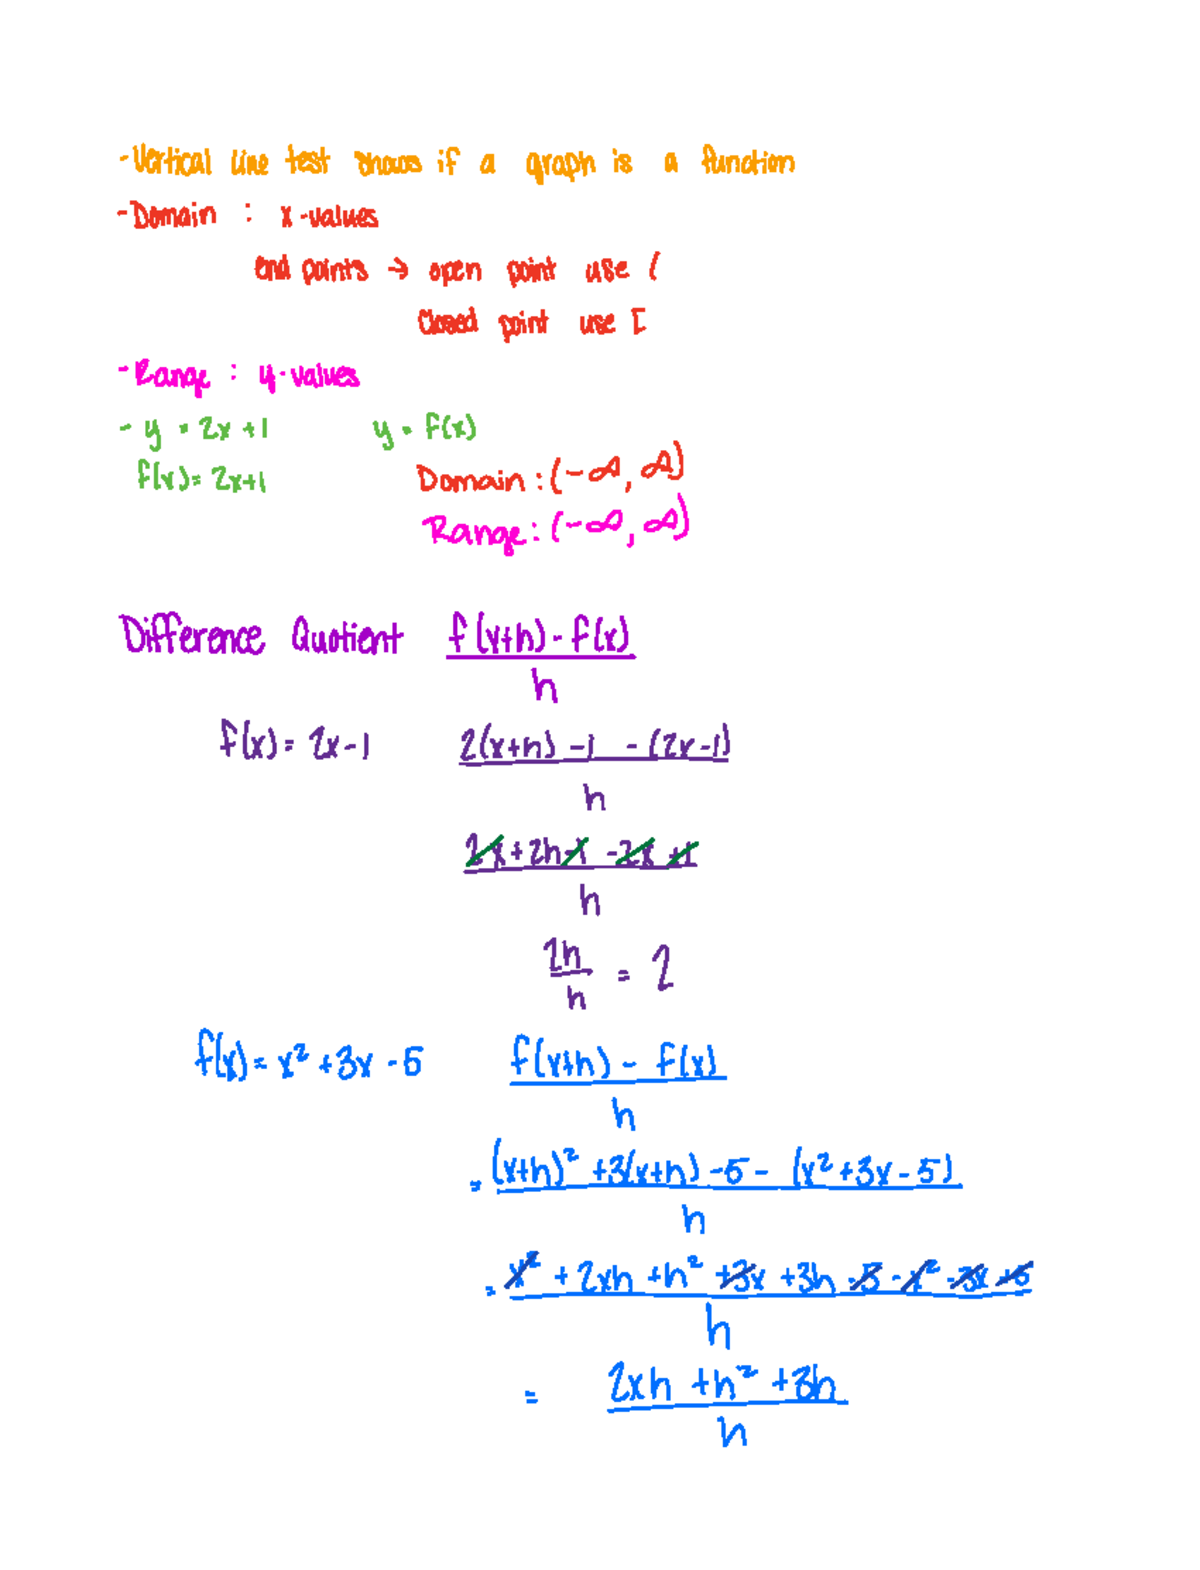 - Vertical line test shows if a graph is a function
- Domain : x-values
end points → open point use (
Closed point use [
- Range : y-values
- y = 2x+1 y = f(x)
f(x) = 2x+1 Domain : (-∞, ∞)
Range : (-∞, ∞)
Difference Quotient f(x+h) - f(x)
h
f(x) = 2x-1 2(x+h) -1 - (2x-1)
h
2x + 2h -1 -2x +1
h
2h
= 2
h
f(x) = x² +3x -5 f(x+h) - f(x)
h
= (x+h)² +3(x+h) -5 - (x²+3x-5)
h
= x² + 2xh +h² +3x +3h -5 -x² -3x +5
h
= 2xh +h² +3h
h